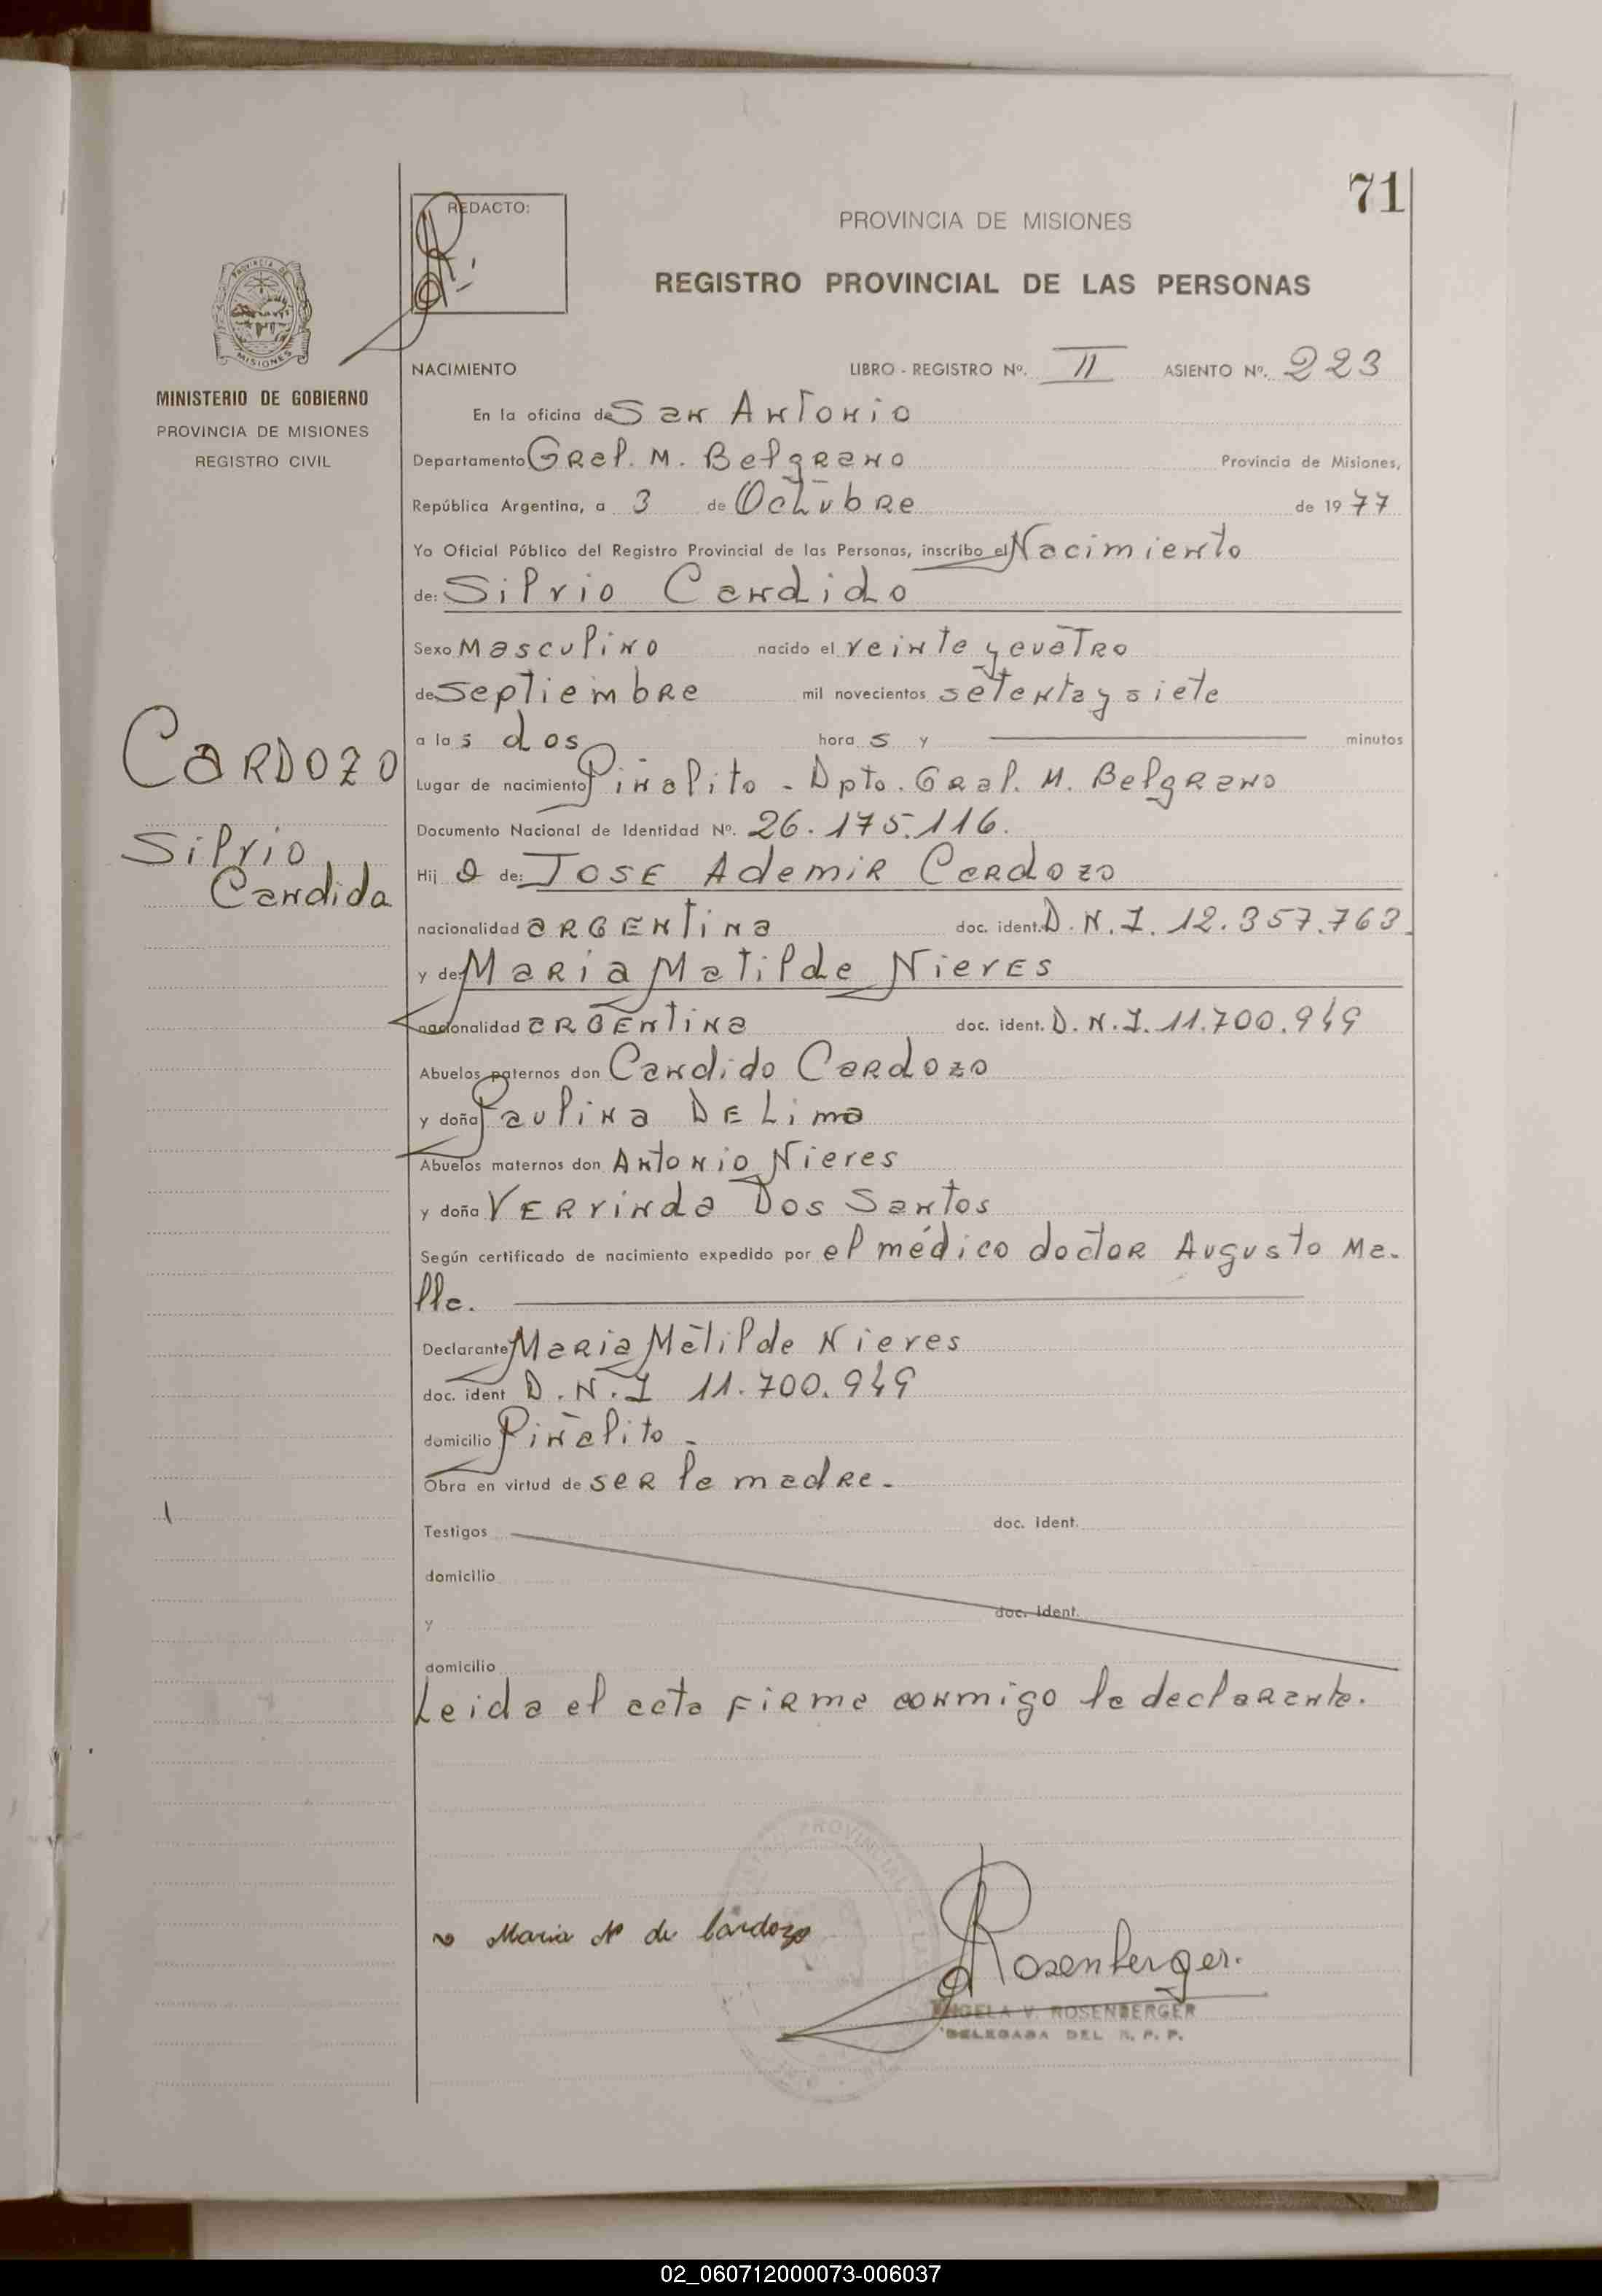 71
REDACTO:
PROVINCIA DE MISIONES
REGISTRO PROVINCIAL DE LAS PERSONAS
MINISTERIO DE GOBIERNO
PROVINCIA DE MISIONES
REGISTRO CIVIL
NACIMIENTO LIBRO - REGISTRO Nº. II ASIENTO Nº. 223
En la oficina de San Antonio
Departamento Gral. M. Belgrano Provincia de Misiones,
República Argentina, a 3 de Octubre de 1977
Yo Oficial Público del Registro Provincial de las Personas, inscribo el Nacimiento
de: Silvio Candido
Sexo Masculino nacido el veinte y cuatro
de septiembre mil novecientos setenta y siete
a las dos horas y minutos
CARDOZO
Silvio
Candida
Lugar de nacimiento Piñalito - Dpto. Gral. M. Belgrano
Documento Nacional de Identidad Nº. 26.175.116.
Hijo de: JOSE Ademir Cardozo
nacionalidad argentina doc. ident. D.N.I. 12.357.763.
y de: Maria Matilde Nieves
nacionalidad argentina doc. ident. D.N.I. 11.700.949
Abuelos paternos don Candido Cardozo
y doña Paulina DE Lima
Abuelos maternos don Antonio Nieves
y doña Vervinda Dos Santos
Según certificado de nacimiento expedido por el médico doctor Augusto Ma-
lla.
Declarante Maria Matilde Nieves
doc. ident D.N.I 11.700.949
domicilio Piñalito -
Obra en virtud de ser la madre.
Testigos doc. ident.
domicilio
y doc. ident.
domicilio
Leida el acta firma conmigo la declarante.
Maria N de Cardozo
Rosenberger.
ANGELA V. ROSENBERGER
DELEGADA DEL R. P. P.
02_060712000073-006037